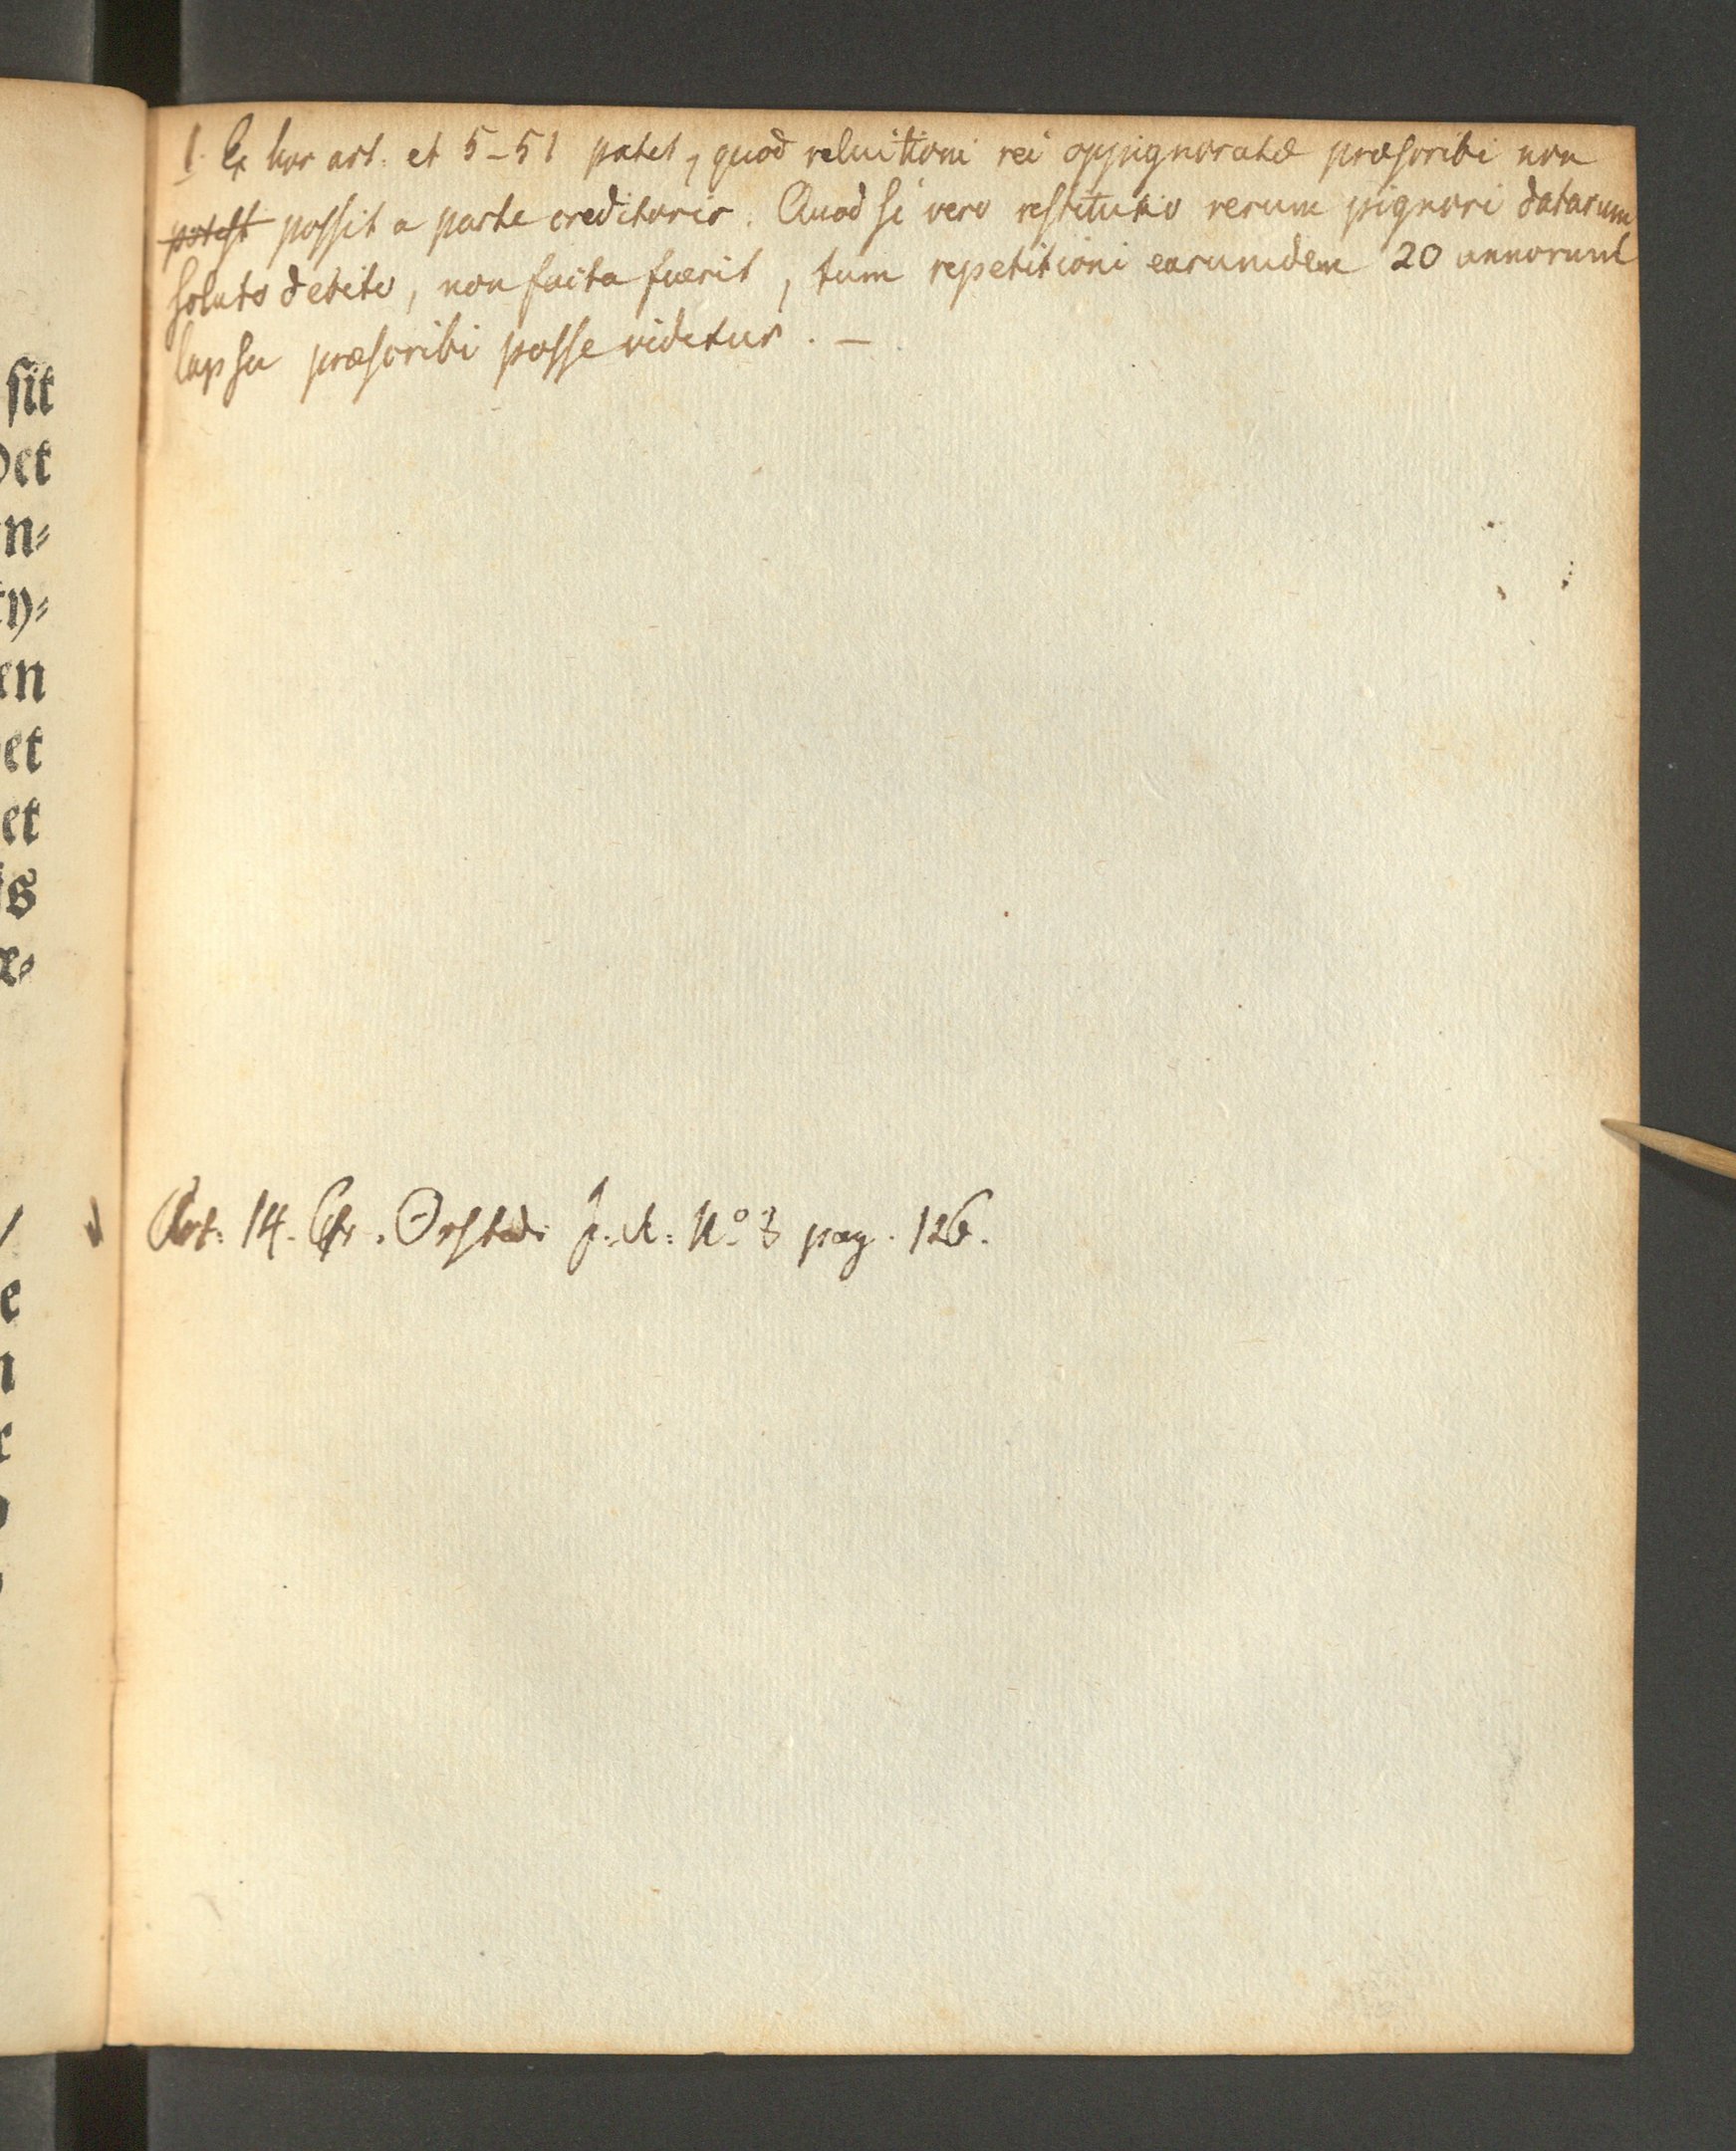 1. Ex hoc art. et 5-51 patet, quod reluitioni rei oppignoratæ præscribi non
potest possit a parte creditoris. Quod si vero restitutio rerum pignori datarum
soluto debito, non facta fuerit, tum repetitioni earumdem 20 annorum
lapsu præscribi posse videtur. —
Art. 14. Cfr. Ørsteds J. A. No 3 pag. 126.
sit
et
n-
y-
en
et
et
s
e